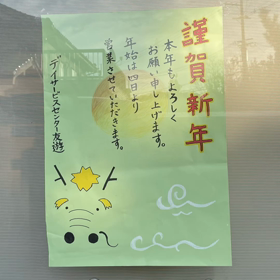 謹賀新年
本年もよろしく
お願い申し上げます。
年始は四日より
営業させていただきます。
デイサービスセンター友遊